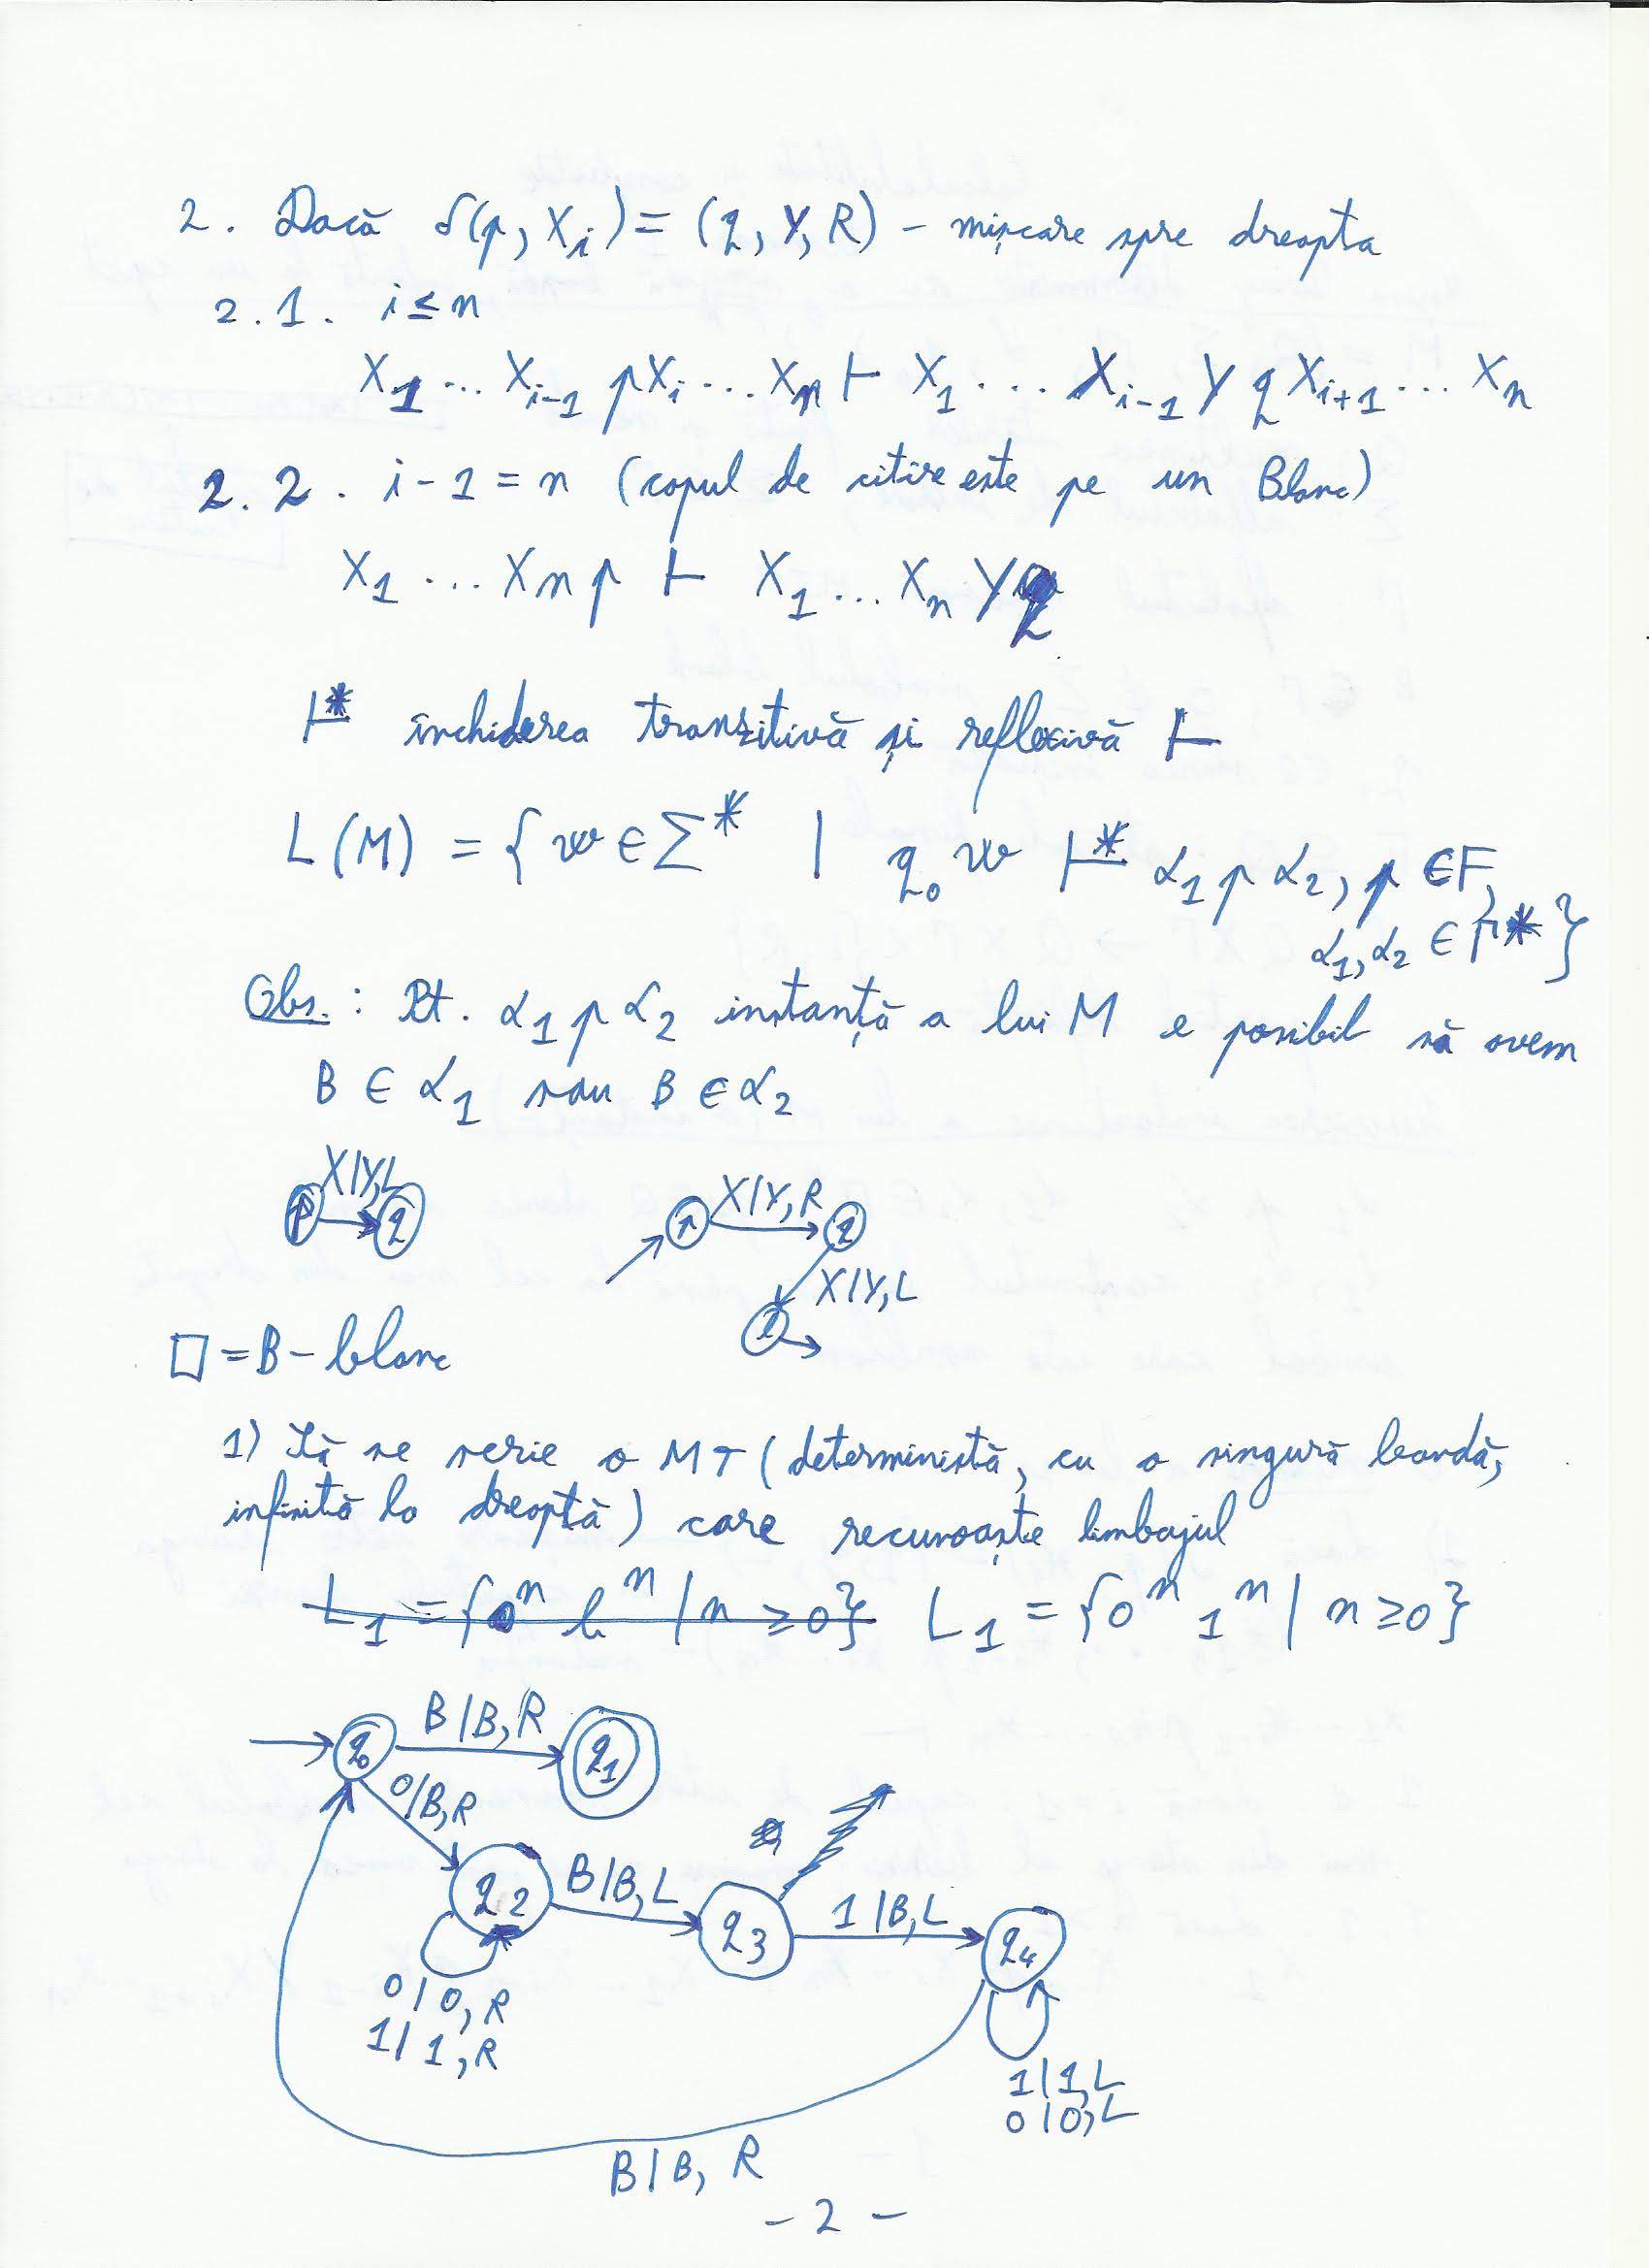 2. Dacă δ(p, Xi) = (q, Y, R) - mișcare spre dreapta
2.1. i ≤ n
X1 ... Xi-1 p Xi ... Xn ⊢ X1 ... Xi-1 Y q Xi+1 ... Xn
2.2. i-1 = n (capul de citire este pe un Blanc)
X1 ... Xn p ⊢ X1 ... Xn Y q
⊢* închiderea tranzitivă și reflexivă ⊢
L(M) = {w ∈ Σ* | q0 w ⊢* α1 p α2, p ∈ F,
α1, α2 ∈ Γ*}
Obs.: Pt. α1 p α2 instanță a lui M e posibil să avem
B ∈ α1 sau B ∈ α2
X/Y,L
p q
X/Y,R
p q
X/Y,L
□ = B - blanc
1) Să se scrie o MT (deterministă, cu o singură bandă,
infinită la dreaptă) care recunoaște limbajul
L1 = {0^n b^n | n ≥ 0} L1 = {0^n 1^n | n ≥ 0}
B/B,R
q0 q1
0/B,R
q2 B/B,L q3 1/B,L q4
0/0,R
1/1,R
1/1,L
0/0,L
B/B, R
- 2 -